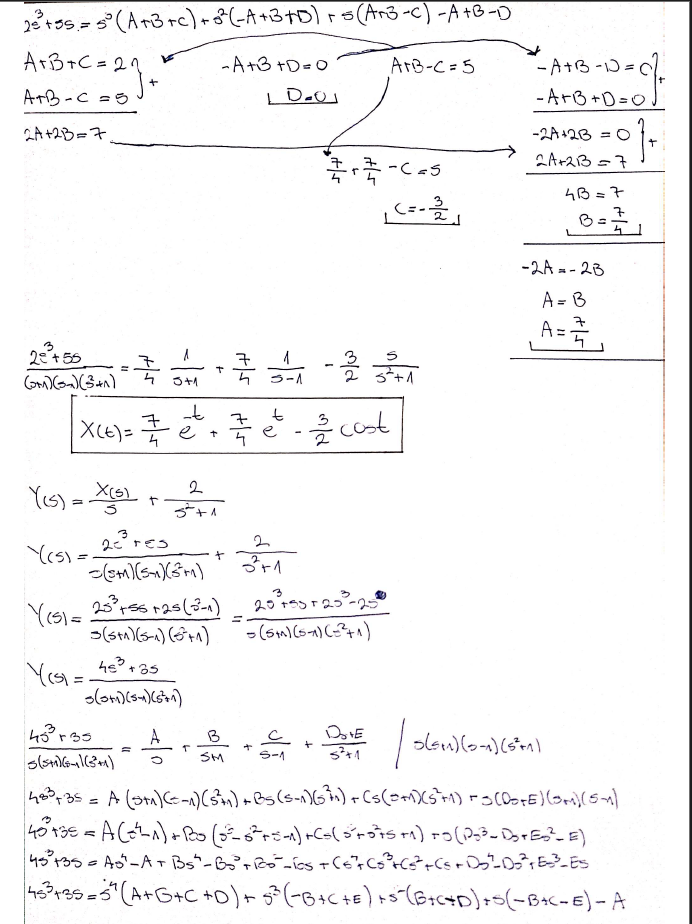 2s³+5s = s³(A+B+C)+s²(-A+B+D)+s(A+B-C)-A+B-D
A+B+C=2 } + -A+B+D=0 A+B-C=5 -A+B-D=0 } +
A+B-C=5 D=0 -A+B+D=0
2A+2B=7 -2A+2B=0 } +
7/4+7/4-C=5 2A+2B=7
C=-3/2 4B=7
B=7/4
-2A=-2B
A=B
A=7/4
2s³+5s/(s+1)(s-1)(s²+1) = 7/4 1/s+1 + 7/4 1/s-1 - 3/2 s/s²+1
X(t)= 7/4 e^-t + 7/4 e^t - 3/2 cost
Y(s) = X(s)/s + 2/s²+1
Y(s) = 2s³+5s/s(s+1)(s-1)(s²+1) + 2/s²+1
Y(s) = 2s³+5s+2s(s²-1)/s(s+1)(s-1)(s²+1) = 2s³+5s+2s³-2s/s(s+1)(s-1)(s²+1)
Y(s) = 4s³+3s/s(s+1)(s-1)(s²+1)
4s³+3s/s(s+1)(s-1)(s²+1) = A/s + B/s+1 + C/s-1 + Ds+E/s²+1 / s(s+1)(s-1)(s²+1)
4s³+3s = A(s+1)(s-1)(s²+1)+Bs(s-1)(s²+1)+Cs(s+1)(s²+1)+s(Ds+E)(s+1)(s-1)
4s³+3s = A(s⁴-1)+Bs(s³-s²+s-1)+Cs(s³+s²+s+1)+s(Ds³-Ds+Es²-E)
4s³+3s = As⁴-A+Bs⁴-Bs³+Bs²-Bs+Cs⁴+Cs³+Cs²+Cs+Ds⁴-Ds²+Es³-Es
4s³+3s = s⁴(A+B+C+D)+s³(-B+C+E)+s²(B+C-D)+s(-B+C-E)-A